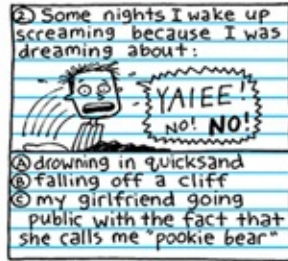 ② Some nights I wake up
screaming because I was
dreaming about:
YAIEE!
NO! NO!
Ⓐ drowning in quicksand
Ⓑ falling off a cliff
Ⓒ my girlfriend going
public with the fact that
she calls me "pookie bear"